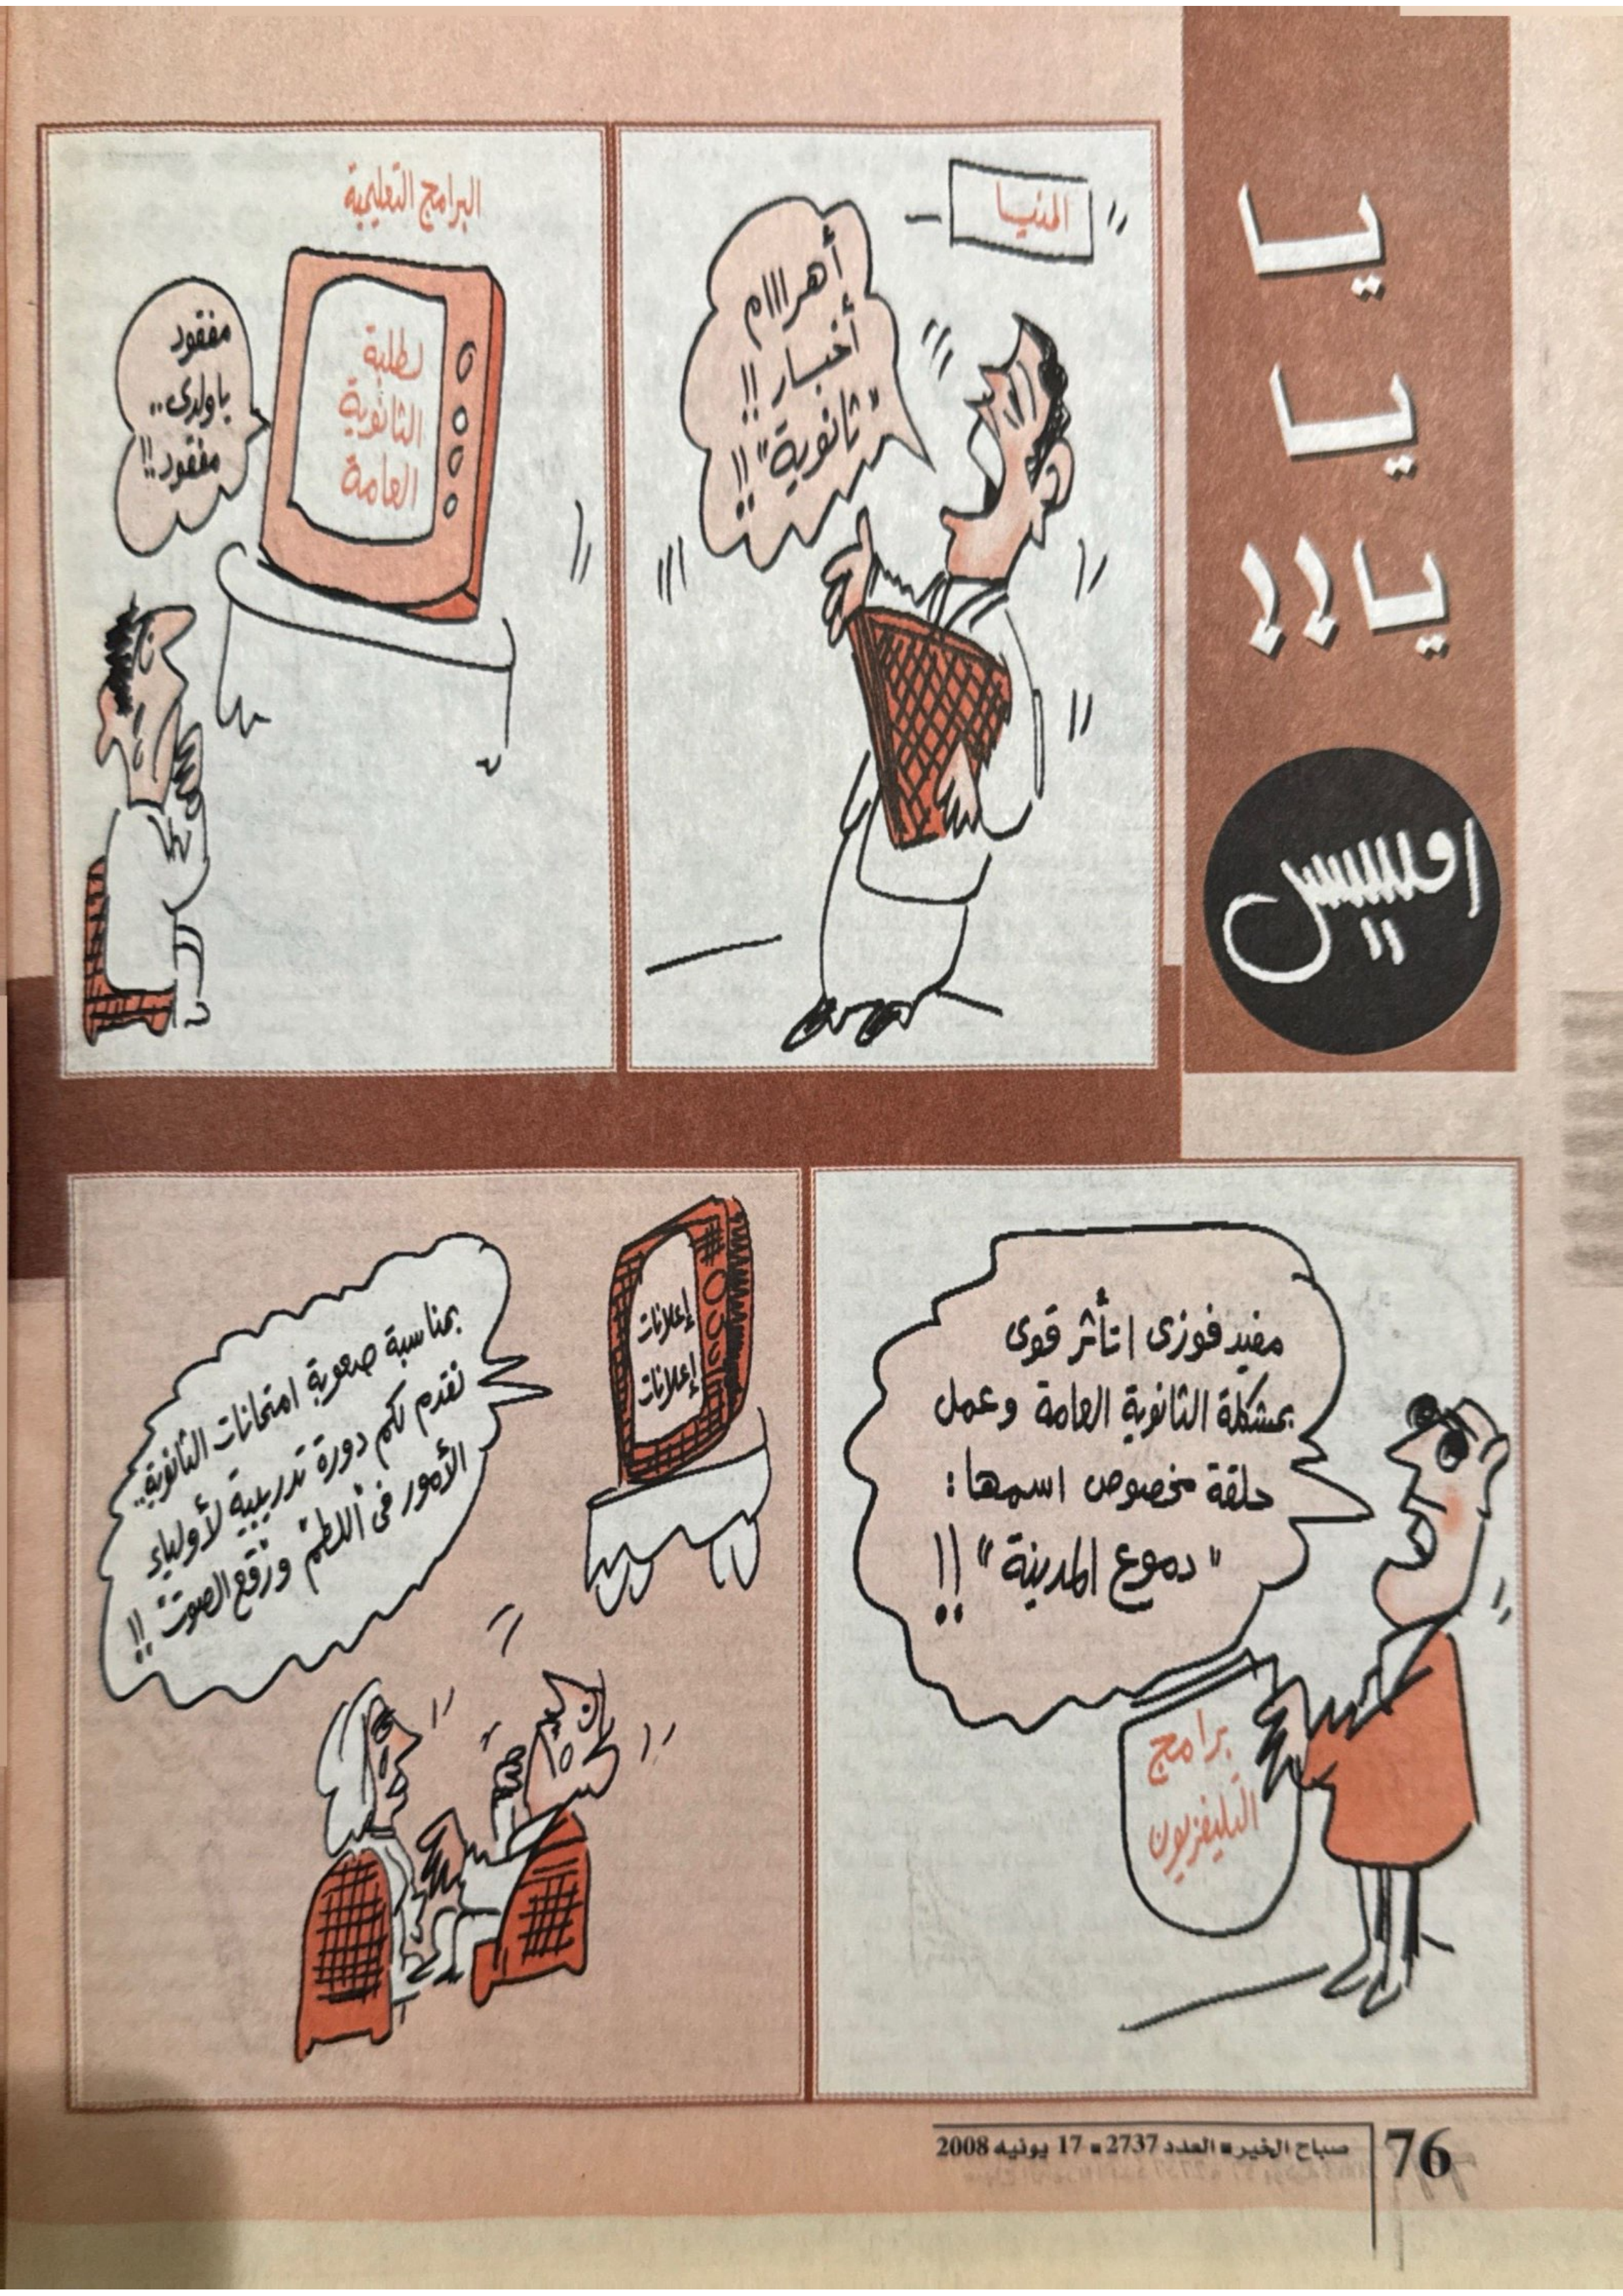 يا
يا
يا!!
المنيا
أهرااام
أخبار!!
"ثانوية"!!
البرامج التعليمية
لطلبة
الثانوية
العامة
مفقود
ياولدى..
مفقود!!
مفيد فوزى اتأثر قوى
بمشكلة الثانوية العامة وعمل
حلقة مخصوص اسمها:
"دموع المدينة"!!
برامج
التليفزيون
إعلانات
إعلانات
بمناسبة صعوبة امتحانات الثانوية..
نقدم لكم دورة تدريبية لأولياء
الأمور فى "اللطم ورقع الصوت"!!
76
صباح الخير ■ العدد 2737 ■ 17 يونيه 2008